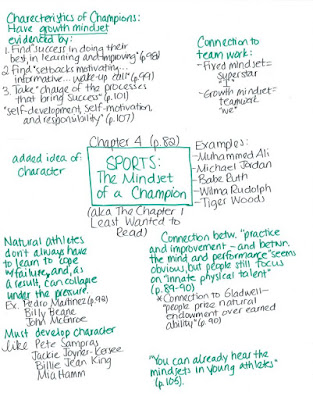 Charecteristics of Champions:
Have growth mindset
evidenced by:
1. Find success in doing their
best, in learning and improving" (p.98)
2. Find "setbacks motivating...
informative... wake-up call" (p.99)
3. Take "charge of the processes
that bring success" (p.101)
"self-development, self-motivation,
and responsibility" (p.107)
Connection to
team work:
-Fixed mindset=
superstar
"I"
-Growth mindset=
teamwork
"we"
added idea of:
character
Chapter 4 (p.82)
SPORTS:
The Mindset
of a Champion
(aka The Chapter I
Least Wanted to
Read)
Examples:
-Muhammed Ali
-Michael Jordan
-Babe Ruth
-Wilma Rudolph
-Tiger Woods
Natural athletes
don't always have
to learn to cope
w/failure, and, as
a result, can collapse
under the pressure.
Ex. Pedro Martinez (p.98)
Billy Beane
John McEnroe
Must develop character
like Pete Sampras
Jackie Joyner-Kersee
Billie Jean King
Mia Hamm
Connection betw. "practice
and improvement - and betwn.
the mind and performance" seems
obvious, but people still focus
on "innate physical talent"
(p.89-90)
*Connection to Gladwell-
people prize natural
endowment over earned
ability" (p.90)
"You can already hear the
mindsets in young athletes"
(p.105).